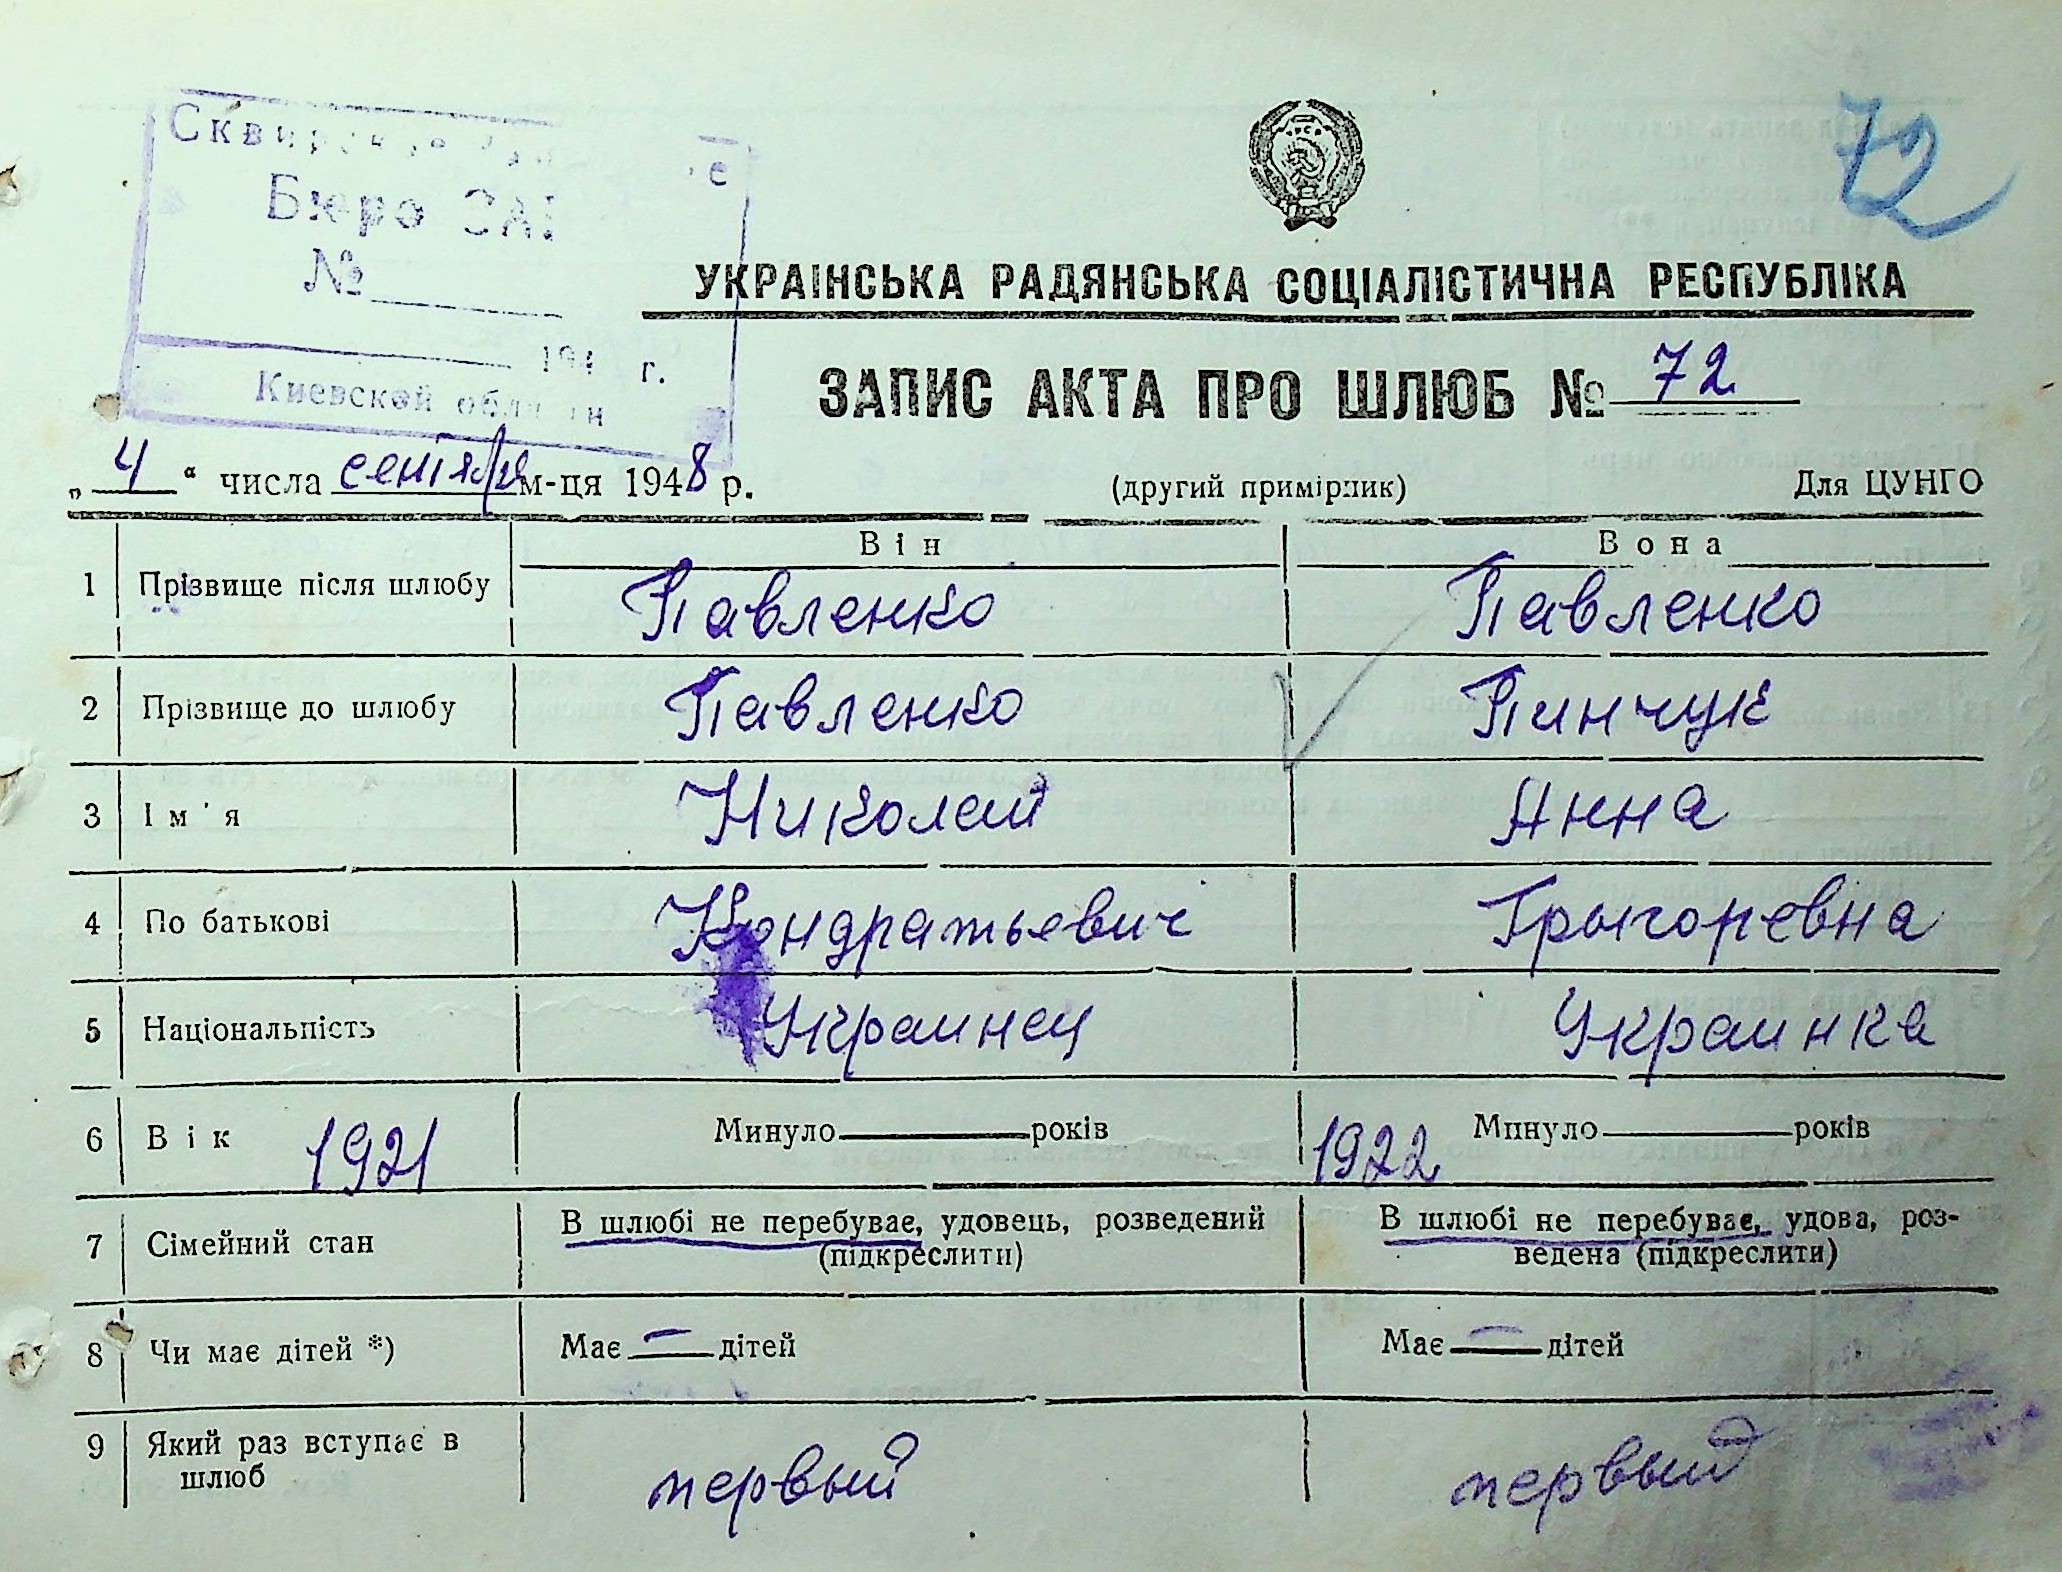 72
Бюро
№
194 г.
Киевской области
УКРАЇНСЬКА РАДЯНСЬКА СОЦІАЛІСТИЧНА РЕСПУБЛІКА
ЗАПИС АКТА ПРО ШЛЮБ № 72
„ 4 “ числа сентября м-ця 1948 р.
(другий примірник)
Для ЦУНГО
Він Вона
1 Прізвище після шлюбу Павленко Павленко
2 Прізвище до шлюбу Павленко Пинчук
3 Ім'я Николай Анна
4 По батькові Кондратьевич Грыгоревна
5 Національність Украинец Украинка
6 Вік 1921 Минуло років 1922 Минуло років
7 Сімейний стан В шлюбі не перебуває, удовець, розведений В шлюбі не перебуває, удова, роз-
(підкреслити) ведена (підкреслити)
8 Чи має дітей *) Має — дітей Має — дітей
9 Який раз вступає в
шлюб первый первый